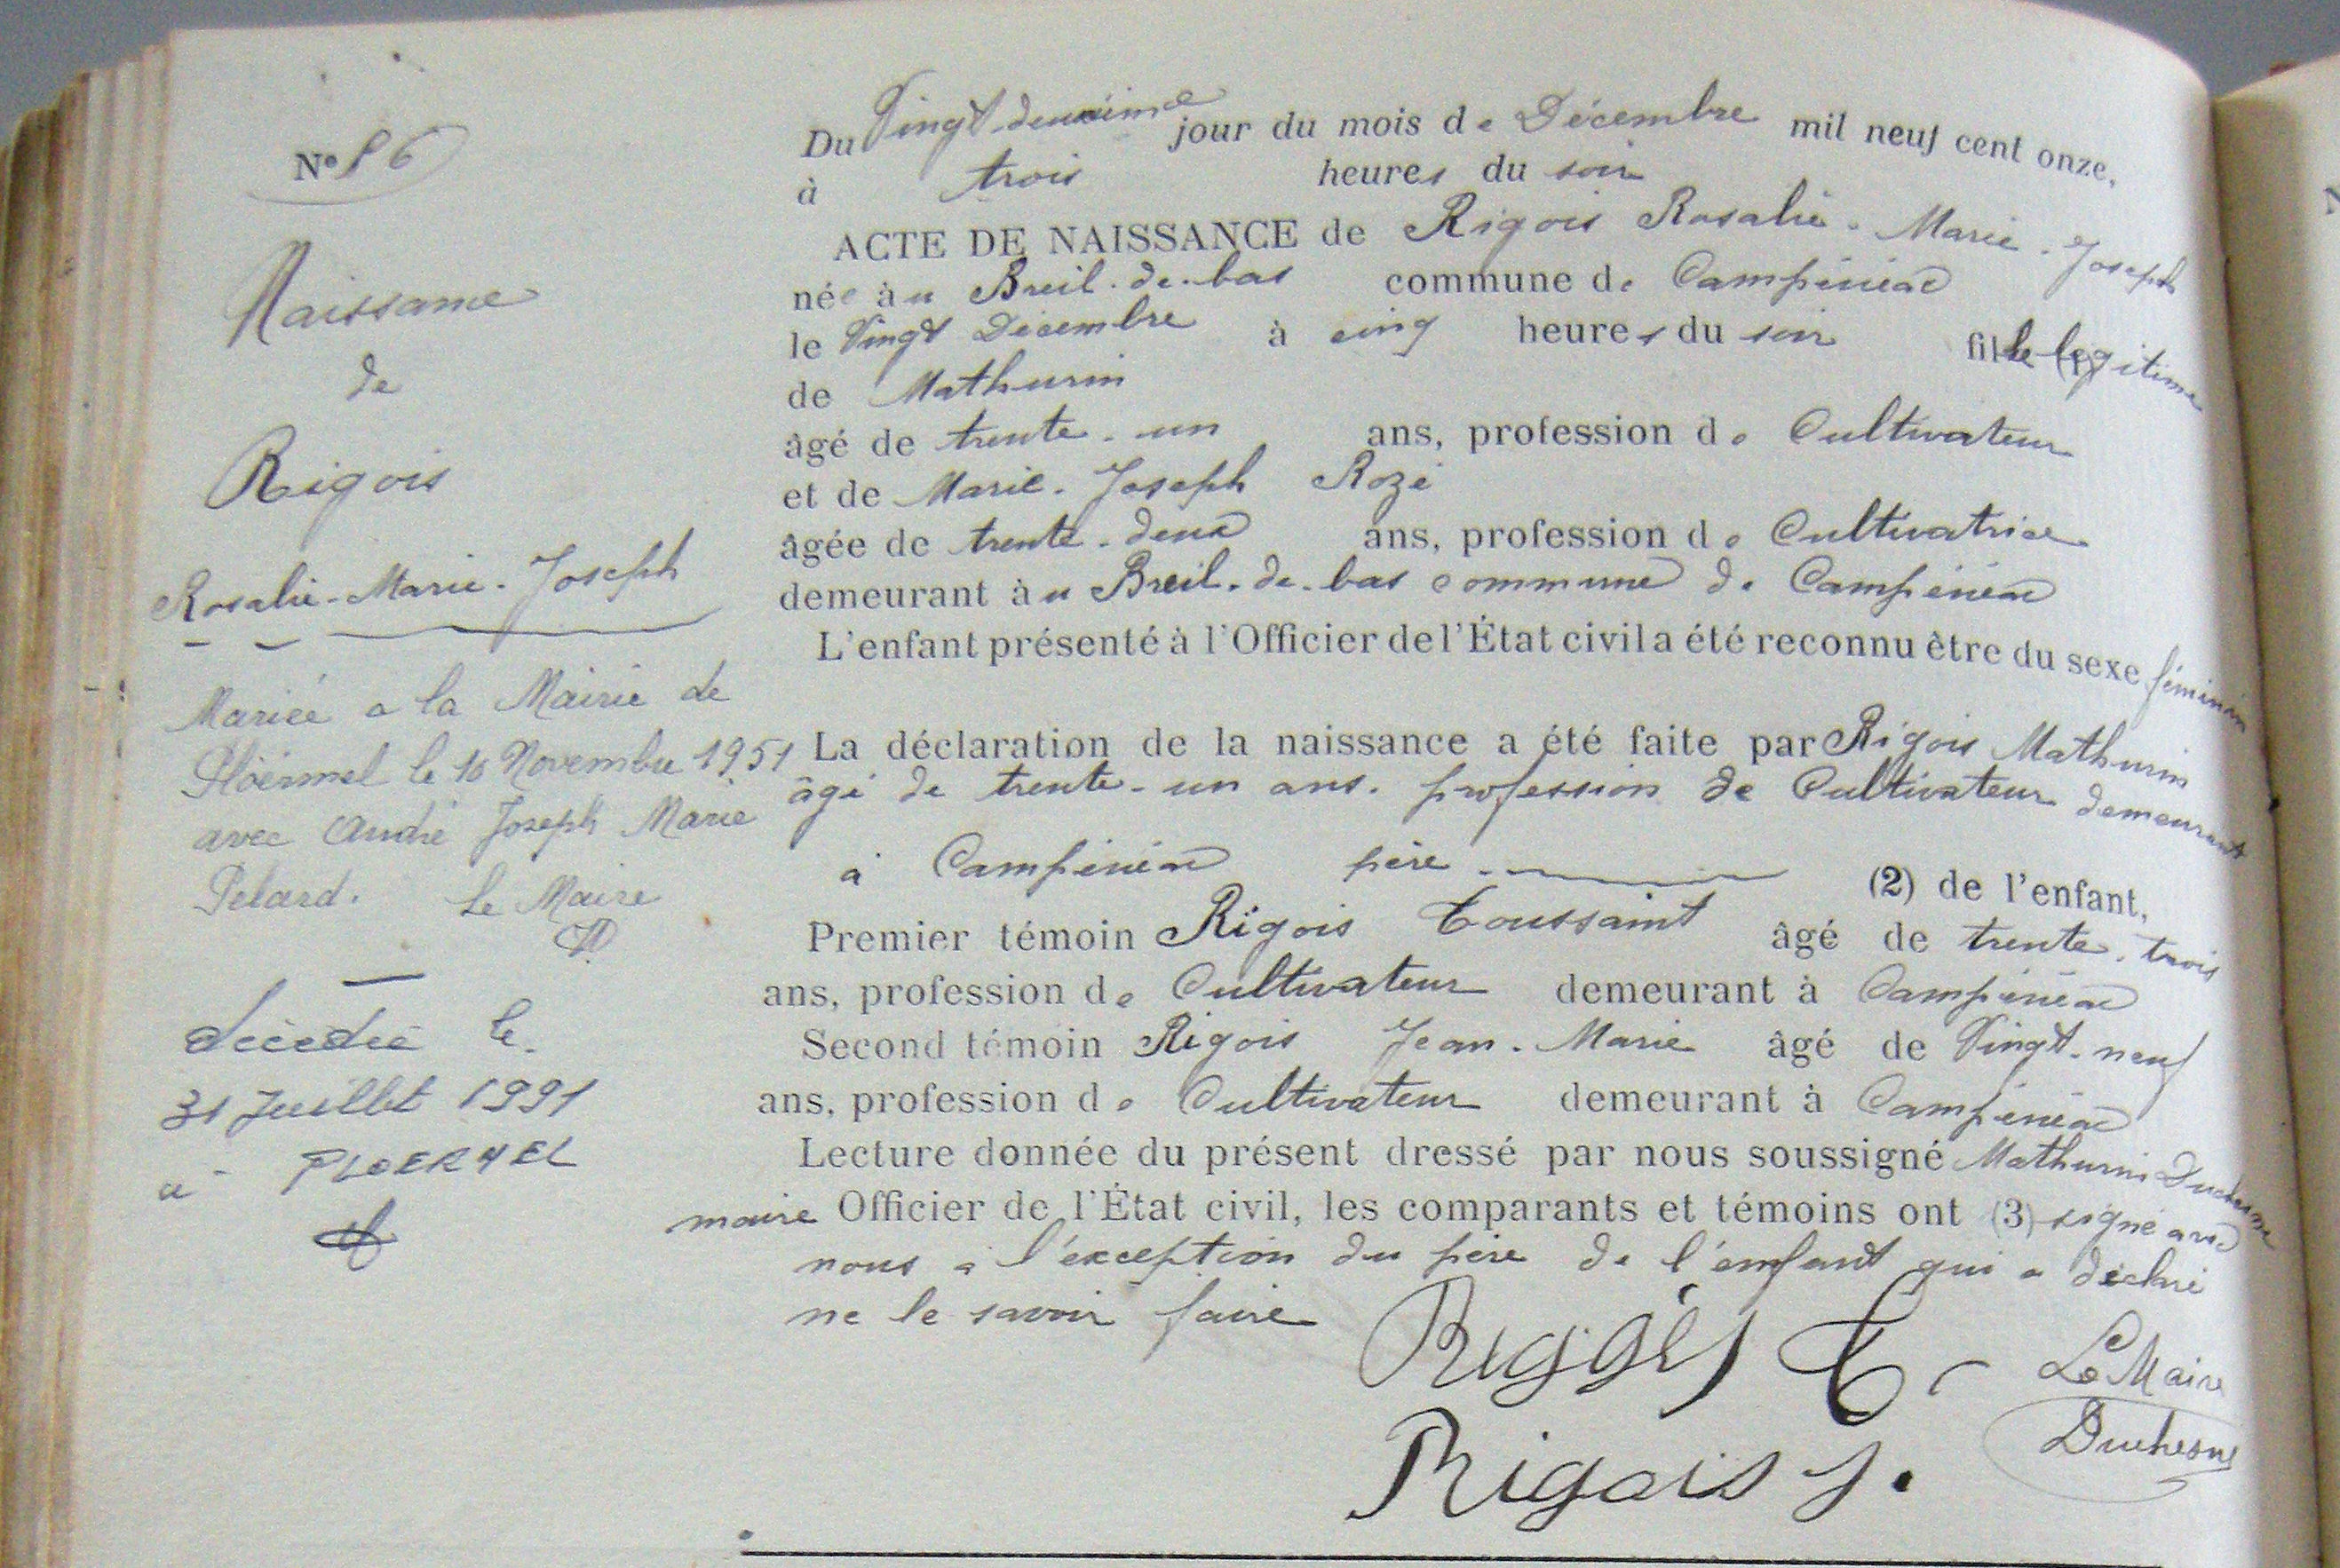 N° 86
Naissance
de
Rigois
Rosalie-Marie-Joseph
Mariée a la Mairie de
Ploërmel le 10 Novembre 1951
avec André Joseph Marie
Pelard. Le Maire
décédée le
31 Juillet 1991
à PLOERMEL
Du Vingt-deuxième jour du mois de Décembre mil neuf cent onze,
à trois heures du soir
ACTE DE NAISSANCE de Rigois Rosalie-Marie-Joseph
née au Breil-de-bas commune de Campénéac
le Vingt Décembre à cinq heures du soir fille (1) légitime
de Mathurin
âgé de trente-un ans, profession de Cultivateur
et de Marie-Joseph Rozé
âgée de trente-deux ans, profession de Cultivatrice
demeurant au Breil-de-bas commune de Campénéac
L'enfant présenté à l'Officier de l'État civil a été reconnu être du sexe féminin
La déclaration de la naissance a été faite par Rigois Mathurin
âgé de trente-un ans. profession de Cultivateur demeurant
à Campénéac père (2) de l'enfant,
Premier témoin Rigois Toussaint âgé de trente-trois
ans, profession de Cultivateur demeurant à Campénéac
Second témoin Rigois Jean-Marie âgé de Vingt-neuf
ans, profession de Cultivateur demeurant à Campénéac
Lecture donnée du présent dressé par nous soussigné Mathurin Duchesne
maire Officier de l'État civil, les comparants et témoins ont (3) signé avec
nous à l'exception du père de l'enfant qui a déclaré
ne le savoir faire
Rigois T. Le Maire
Rigois J. Duchesne